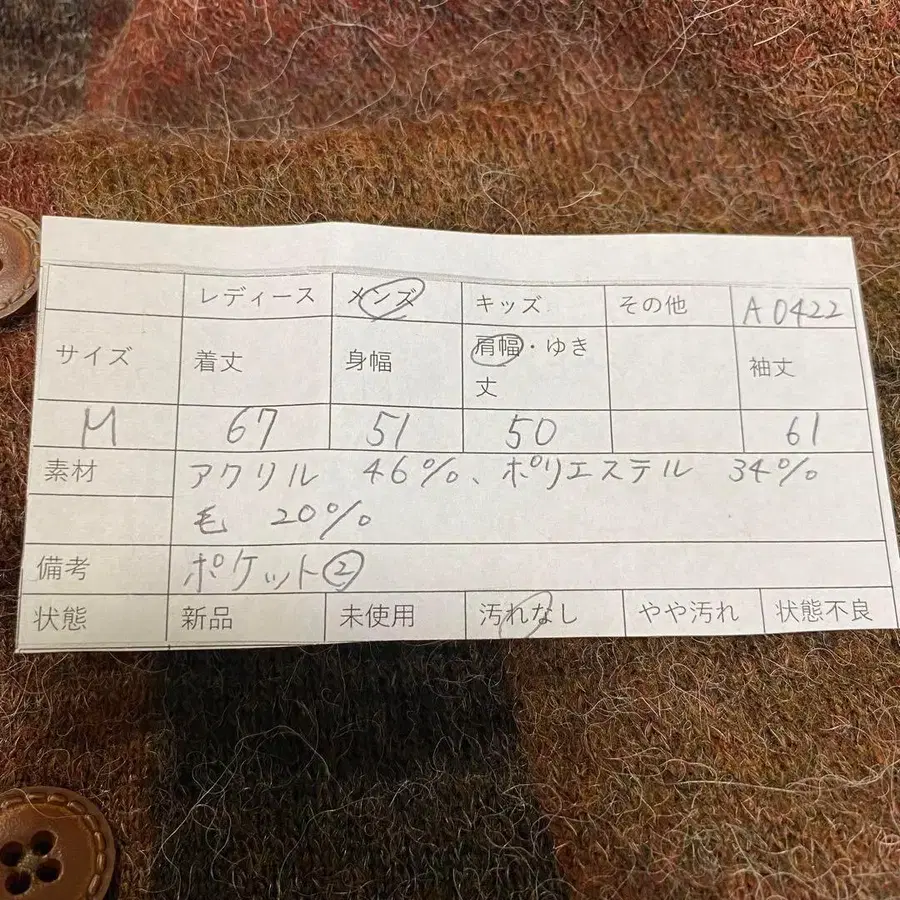 レディース メンズ キッズ その他 A0422
サイズ 着丈 身幅 肩幅・ゆき丈 袖丈
M 67 51 50 61
素材 アクリル 46%、ポリエステル 34%
毛 20%
備考 ポケット②
状態 新品 未使用 汚れなし やや汚れ 状態不良